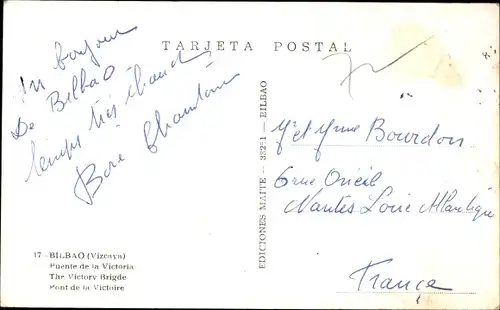 TARJETA POSTAL
Un bonjour
De Bilbao
temps très chaud
Bore
17 - BILBAO (Vizcaya)
Puente de la Victoria
The Victory Brigde
Pont de la Victoire
EDICIONES MAITE - - BILBAO
Mr et Mme Bourdon
6 rue
Nantes Loire Atlantique
France